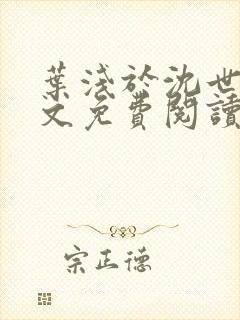 葉淺於沈世
文免費閱讀
宗正德